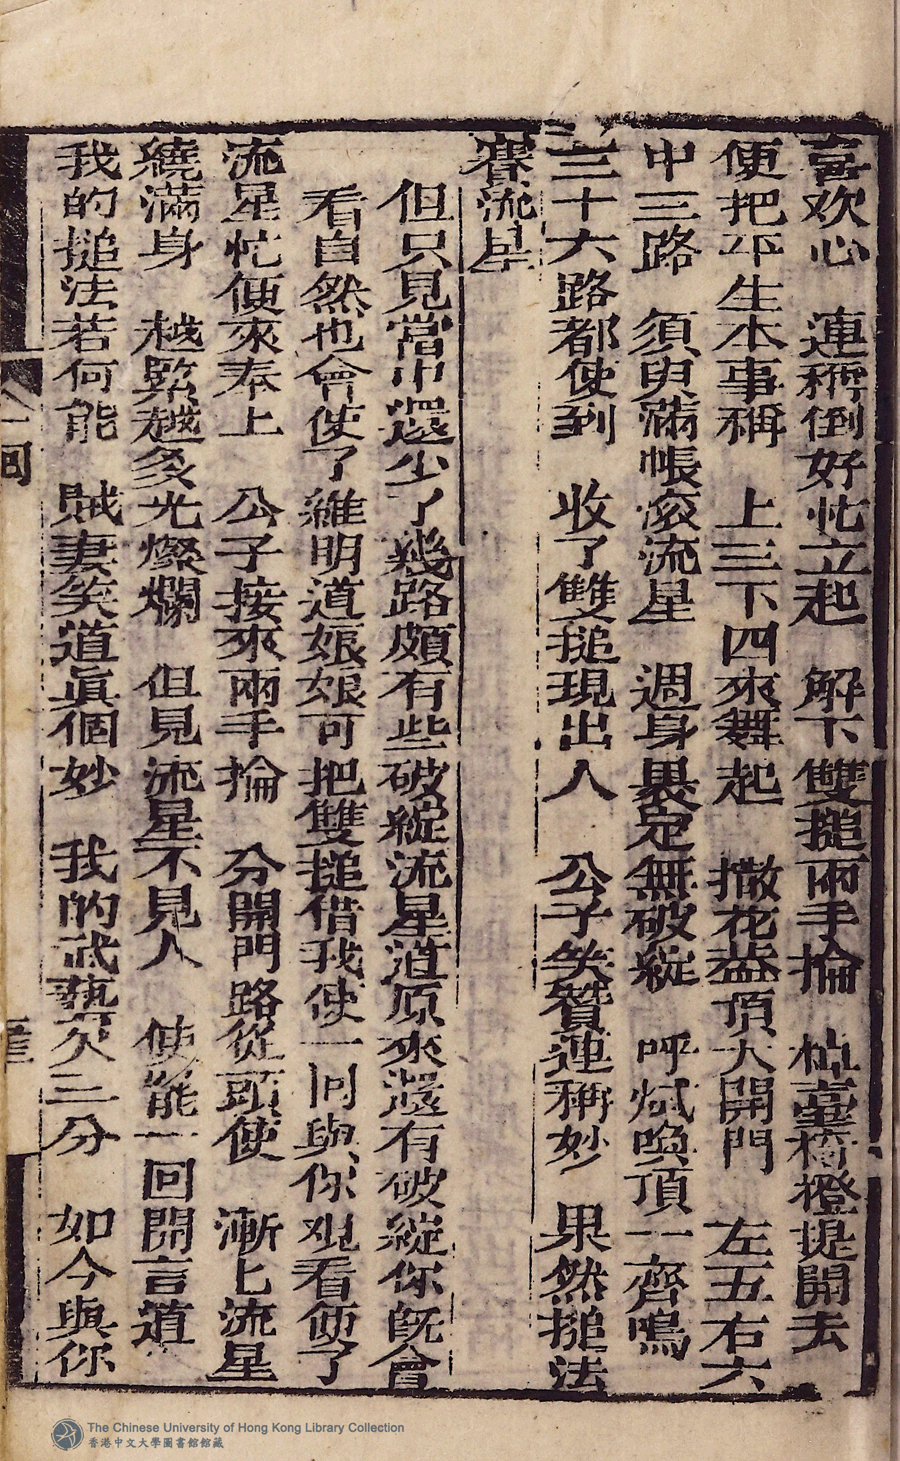 喜欢心　連稱倒好忙立起　解下雙搥兩手掄　棹臺椅櫈提開去
便把平生本事稱　上三下四來舞起　撒花盖頂大開門　左五右六
中三路　須臾滿帳滚流星　週身裹定無破綻　呼喚頂一齊鳴
三十六路都使到　收了雙搥現出人　公子笑贊連稱妙　果然搥法
賽流星
但只見當中還少了幾路頗有些破綻流星道原來還有破綻你既會
看自然也會使了維明道娘娘可把雙搥借我使一回與你观看便了
流星忙便來奉上　公子接來兩手掄　分開門路從頭使　漸匕流星
繞滿身　越緊越炙光燦爛　但見流星不見人　使罷一回開言道
我的搥法若何能　賊妻笑道眞個妙　我的武藝欠三分　如今與你
一回
The Chinese University of Hong Kong Library Collection
香港中文大學圖書館館藏